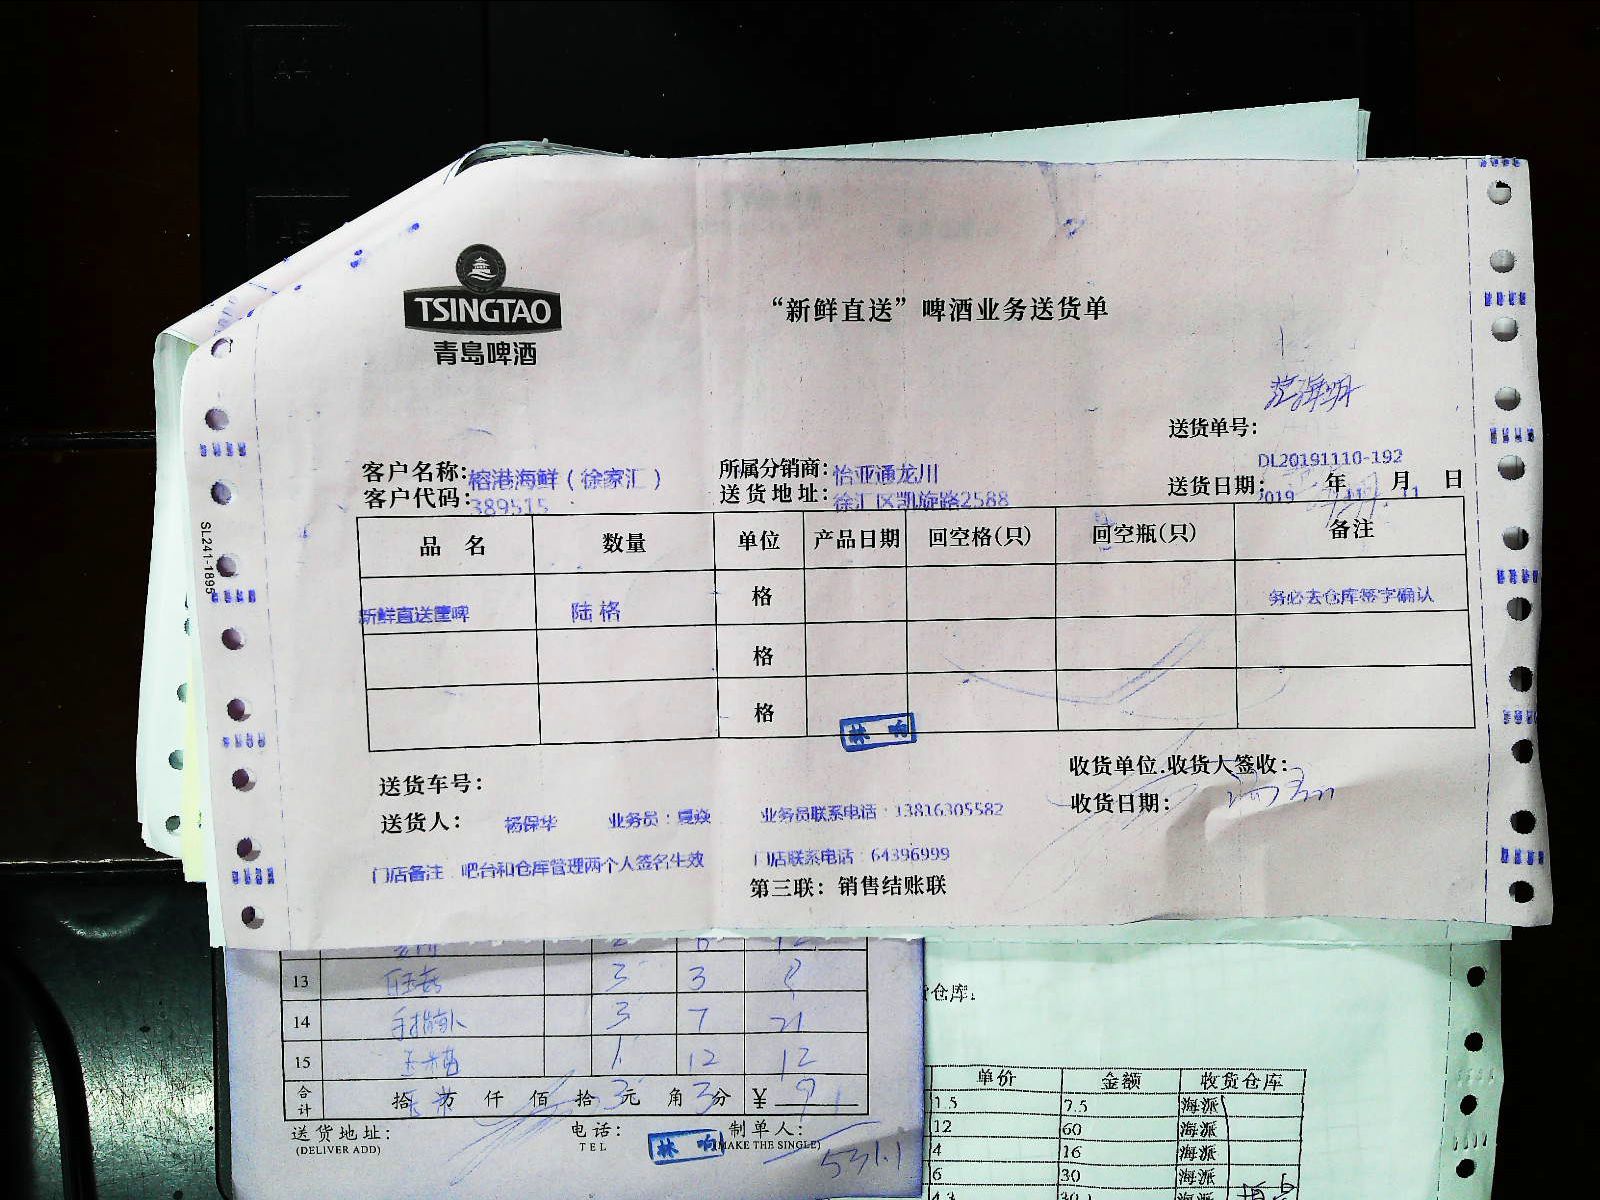 TSINGTAO
青岛啤酒
“新鲜直送”啤酒业务送货单
送货单号：
DL20191110-192
客户名称：榕港海鲜（徐家汇） 所属分销商：怡亚通龙川
客户代码：389515 送货地址：徐汇区凯旋路2588 送货日期：2019 年 11 月 11 日
SL241-1895
品名 数量 单位 产品日期 回空格(只) 回空瓶(只) 备注
新鲜直送筐啤 陆格 格 务必去仓库签字确认
格
格
林响
送货车号： 收货单位.收货人签收：
收货日期：
送货人： 杨保华 业务员：夏焱 业务员联系电话：13816305582
门店备注 吧台和仓库管理两个人签名生效 门店联系电话：64396999
第三联：销售结账联
13 3 3
14 手指胡卜 3 7 21
15 玉米 1 12 12
合计 拾 万 仟 佰 拾 元 角 分 ￥
送货地址： 电话： 制单人：
(DELIVER ADD) TEL (MAKE THE SINGLE)
林响
仓库：
单价 金额 收货仓库
1.5 7.5 海派
12 60 海派
4 16 海派
6 30 海派